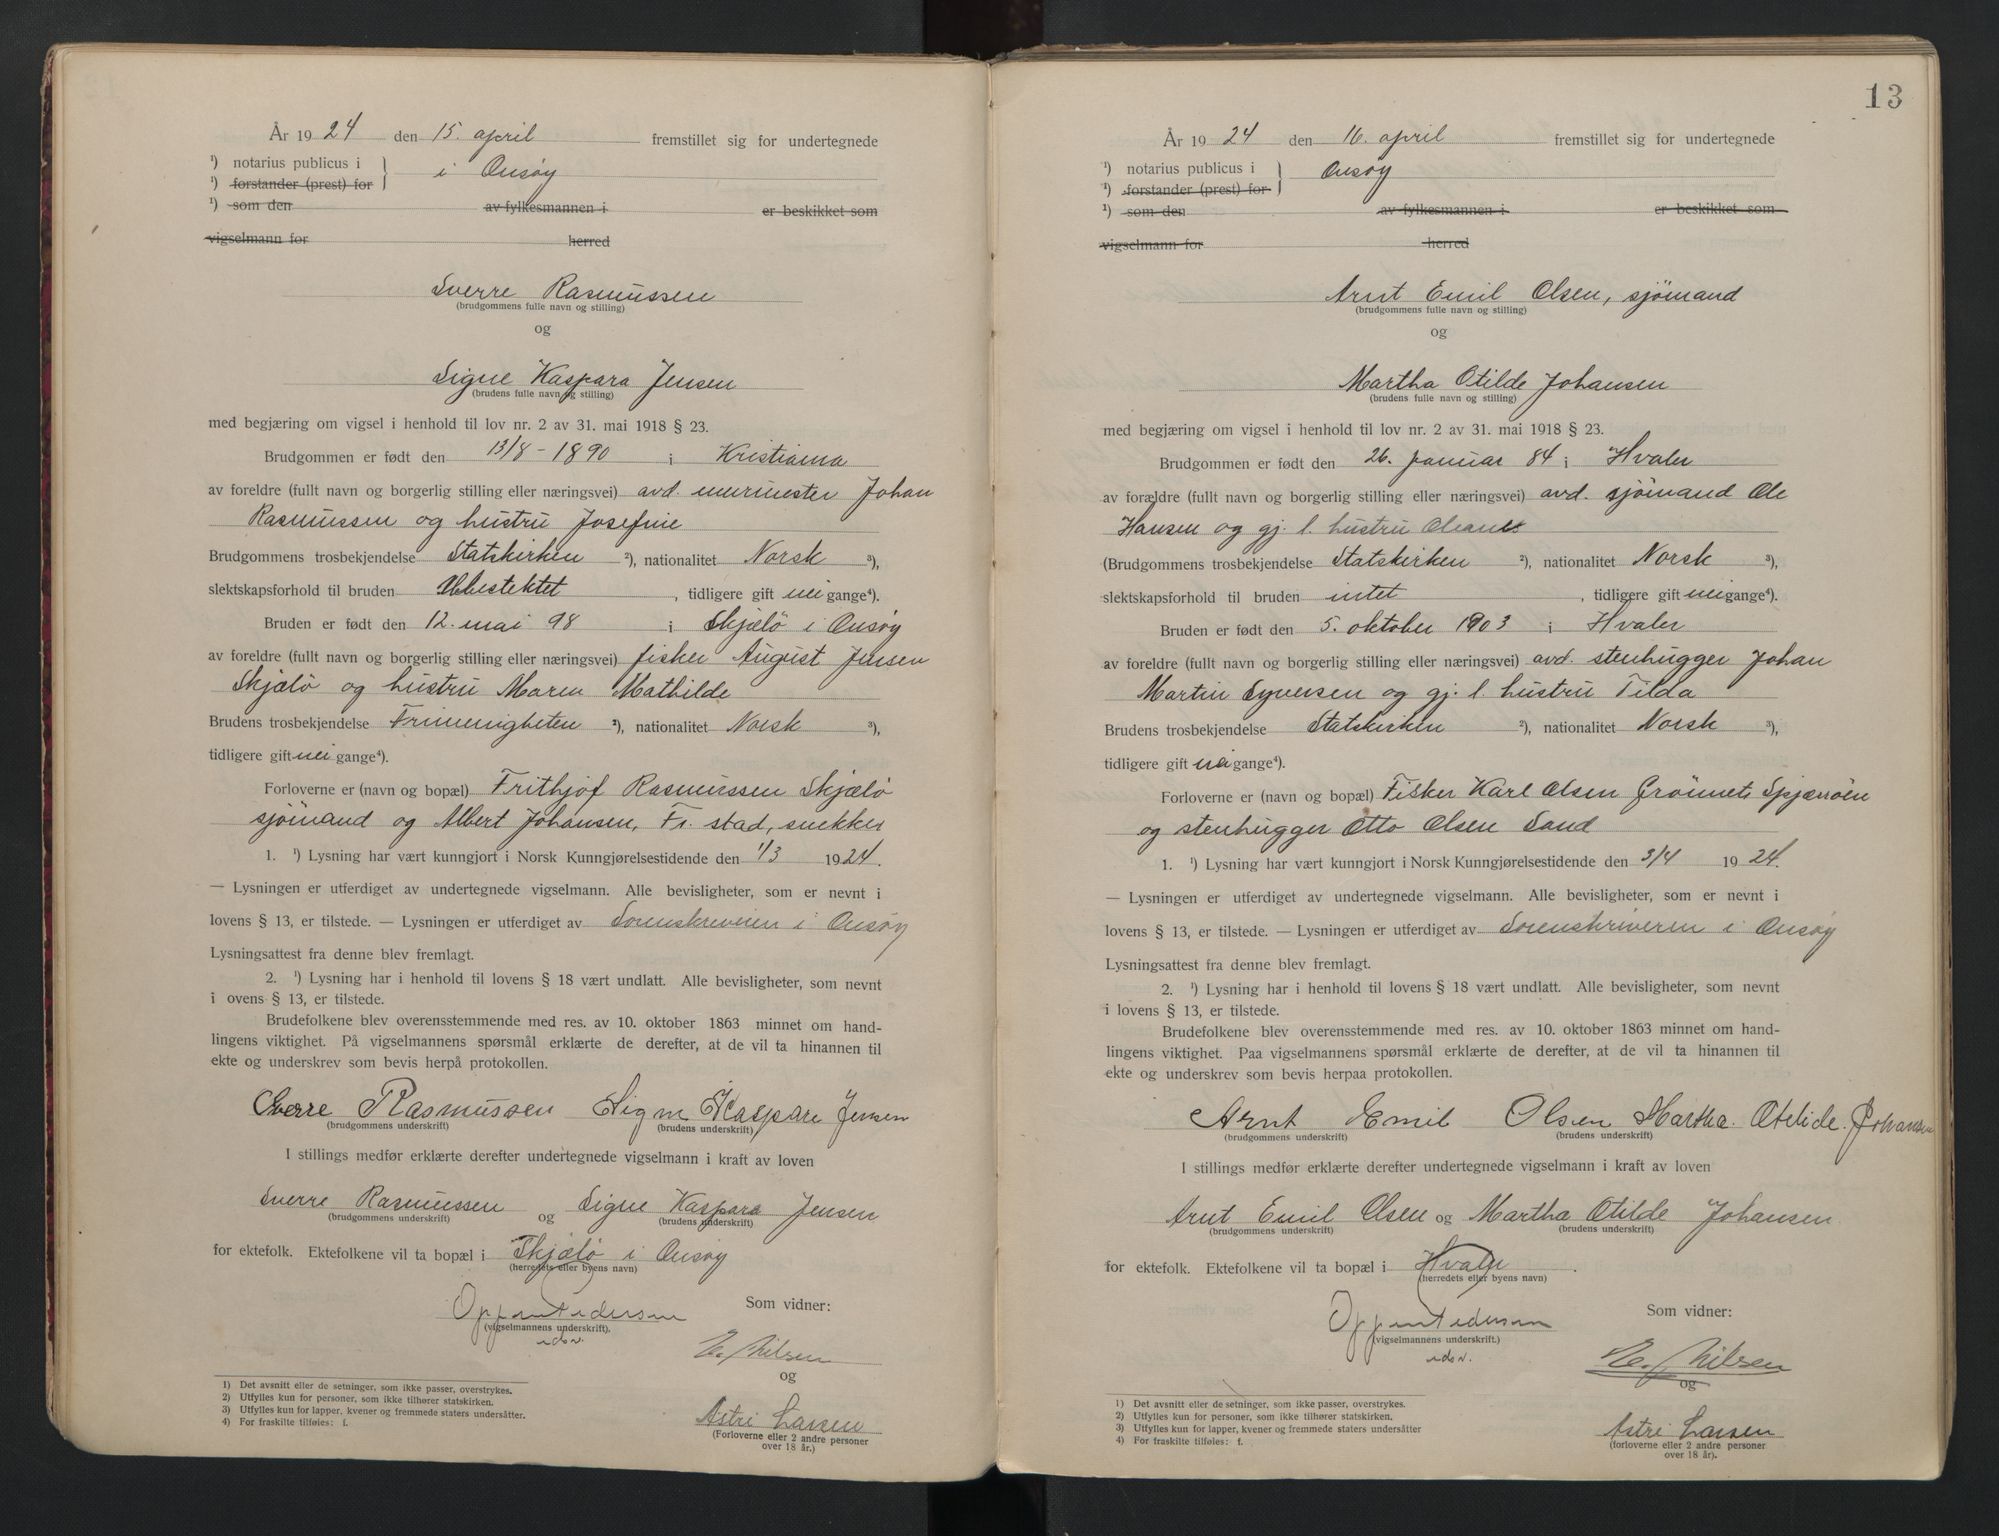 År 1924 den 15. april fremstillet sig for undertegnede
¹) notarius publicus i } i Onsøy
¹) forstander (prest) for
¹) som den av fylkesmannen i er beskikket som
vigselmann for herred
Sverre Rasmussen
(brudgommens fulle navn og stilling)
og
Signe Kaspara Jensen
(brudens fulle navn og stilling)
med begjæring om vigsel i henhold til lov nr. 2 av 31. mai 1918 § 23.
Brudgommen er født den 13/8 - 1890 i Kristiania
av foreldre (fullt navn og borgerlig stilling eller næringsvei) avd. murmester Johan
Rasmussen og hustru Josefine
Brudgommens trosbekjendelse Statskirken ²), nationalitet Norsk ³),
slektskapsforhold til bruden Ubeslektet, tidligere gift nei gange⁴).
Bruden er født den 12. mai 98 i Skjælö i Onsøy
av foreldre (fullt navn og borgerlig stilling eller næringsvei) fisker August Jensen
Skjælö og hustru Maren Mathilde
Brudens trosbekjendelse Frimenigheten ²), nationalitet Norsk ³),
tidligere gift nei gange⁴).
Forloverne er (navn og bopæl) Frithjof Rasmussen Skjælö
sjömand og Albert Johansen, Fr. stad, snekker
1. ¹) Lysning har vært kunngjort i Norsk Kunngjørelsestidende den 1/3 1924.
— Lysningen er utferdiget av undertegnede vigselmann. Alle bevisligheter, som er nevnt i
lovens § 13, er tilstede. — Lysningen er utferdiget av Sorenskriveren i Onsøy
Lysningsattest fra denne blev fremlagt.
2. ¹) Lysning har i henhold til lovens § 18 vært undlatt. Alle bevisligheter, som nevnt
i ovens § 13, er tilstede.
Brudefolkene blev overensstemmende med res. av 10. oktober 1863 minnet om hand-
lingens viktighet. På vigselmannens spørsmål erklærte de derefter, at de vil ta hinannen til
ekte og underskrev som bevis herpå protokollen.
Sverre Rasmussen Signe Kaspare Jensen
(brudgommens underskrift) (brudens underskrift)
I stillings medfør erklærte derefter undertegnede vigselmann i kraft av loven
Sverre Rasmussen og Signe Kaspara Jensen
(brudgommens underskrift) (brudens underskrift)
for ektefolk. Ektefolkene vil ta bopæl i Skjælö i Onsøy
(herredets eller byens navn)
Som vidner:
(vigselmannens underskrift).
E. Nilsen
og
Astri Larsen
(Forloverne eller 2 andre personer
over 18 år.)
1) Det avsnitt eller de setninger, som ikke passer, overstrykes.
2) Utfylles kun for personer, som ikke tilhører statskirken.
3) Utfylles kun for lapper, kvener og fremmede staters undersåtter.
4) For fraskilte tilføies: f.
13
År 1924 den 16. april fremstillet sig for undertegnede
¹) notarius publicus i } Onsøy
¹) forstander (prest) for
¹) som den av fylkesmannen i er beskikket som
vigselmann for herred
Arnt Emil Olsen, sjömand
(brudgommens fulle navn og stilling)
og
Martha Otilde Johansen
(brudens fulle navn og stilling)
med begjæring om vigsel i henhold til lov nr. 2 av 31. mai 1918 § 23.
Brudgommen er født den 26. januar 84 i Hvaler
av forældre (fullt navn og borgerlig stilling eller næringsvei) avd. sjömand Ole
Hansen og gj. l. hustru Oleane
(Brudgommens trosbekjendelse Statskirken ²), nationalitet Norsk ³),
slektskapsforhold til bruden intet, tidligere gift nei gange⁴).
Bruden er født den 5. oktober 1903 i Hvaler
av foreldre (fullt navn og borgerlig stilling eller næringsvei) avd. stenhugger Johan
Martin Syversen og gj. l. hustru Tilda
Brudens trosbekjendelse Statskirken ²), nationalitet Norsk ³),
tidligere gift nei gange⁴).
Forloverne er (navn og bopæl) Fisker Karl Olsen Grönnet, Spjærröen
og stenhugger Otto Olsen Sand
1. ¹) Lysning har vært kunngjort i Norsk Kunngjørelsestidende den 3/4 1924.
— Lysningen er utferdiget av undertegnede vigselmann. Alle bevisligheter, som er nevnt i
lovens § 13, er tilstede. — Lysningen er utferdiget av Sorenskriveren i Onsøy
Lysningsattest fra denne blev fremlagt.
2. ¹) Lysning har i henhold til lovens § 18 vært undlatt. Alle bevisligheter, som nevnt
i lovens § 13, er tilstede.
Brudefolkene blev overensstemmende med res. av 10. oktober 1863 minnet om hand-
lingens viktighet. Paa vigselmannens spørsmål erklærte de derefter, at de vil ta hinannen til
ekte og underskrev som bevis herpaa protokollen.
Arnt Emil Olsen Martha Otelide Johansen
(brudgommens underskrift) (brudens underskrift)
I stillings medfør erklærte derefter undertegnede vigselmann i kraft av loven
Arnt Emil Olsen og Martha Otilde Johansen.
(brudgommens underskrift) (brudens underskrift)
for ektefolk. Ektefolkene vil ta bopæl i Hvaler.
(herredets eller byens navn)
Som vidner:
(vigselmannens underskrift.)
E. Nilsen
og
Astri Larsen
(forloverne eller 2 andre personer
over 18 år).
1) Det avsnitt eller de setninger, som ikke passer, overstrykes.
2) Utfylles kun for personer, som ikke tilhører statskirken.
3) Utfylles kun for lapper, kvener og fremmede staters undersåtter
4) For fraskilte tilføies: f.